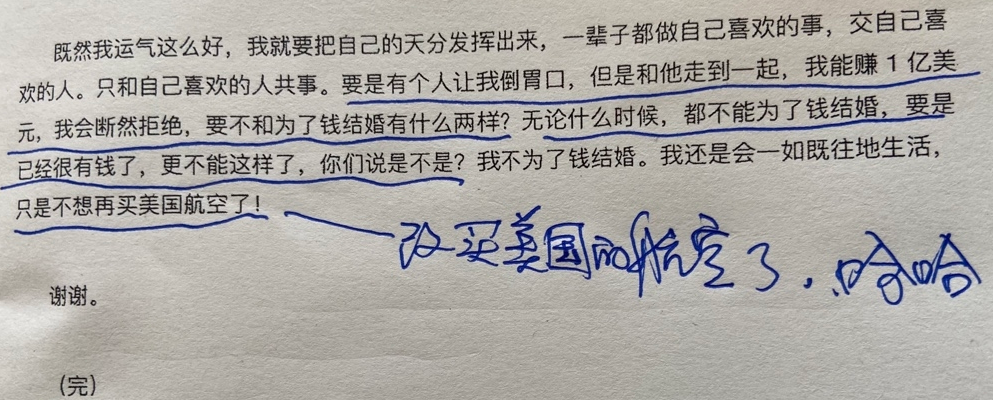 既然我运气这么好，我就要把自己的天分发挥出来，一辈子都做自己喜欢的事，交自己喜
欢的人。只和自己喜欢的人共事。要是有个人让我倒胃口，但是和他走到一起，我能赚 1 亿美
元，我会断然拒绝，要不和为了钱结婚有什么两样？无论什么时候，都不能为了钱结婚，要是
已经很有钱了，更不能这样了，你们说是不是？我不为了钱结婚。我还是会一如既往地生活，
只是不想再买美国航空了！
改买美国的航空了，哈哈
谢谢。
（完）